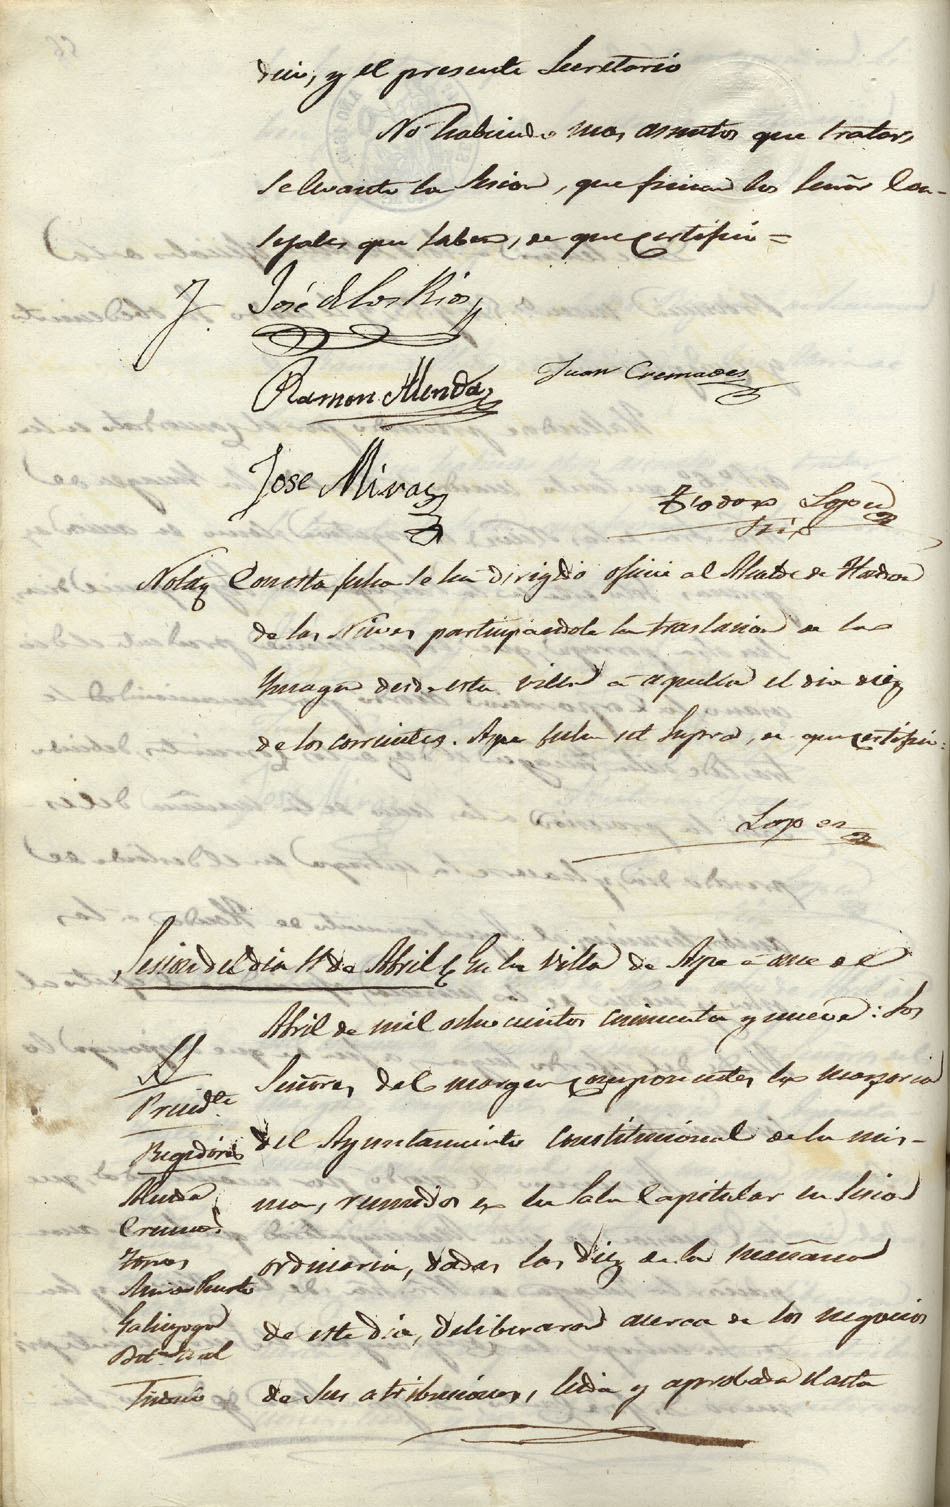 dico, y el presente Secretario
No habiendo mas asuntos que tratar,
se levantó la sesion, que firman los Señor Con-
sejales que saben, de que certifico =
José de los Rios
Ramon Alenda
Juan Cremades
Jose Miras
Teodoro Lopez
Srio
Nota Con esta fecha se há dirigido oficio al Alcalde de Hondon
de las Nieves participandole la traslacion de la
Ymagen desde esta villa á aquella el dia diez
de los corrientes. Aspe fecha ut supra, de que certifico =
Lopez
Sesion del dia 11 de Abril En la Villa de Aspe á once de
Abril de mil ochocientos cincuenta y nueve: Los
SS
Señores del margen componentes la mayoria
Presidte
del Ayuntamiento Constitucional de la mis-
Regidores
ma, reunidos en la Sala Capitular en sesion
Alenda
Cremads
ordinaria, dadas las diez de la mañana
Torres
de este dia, deliberaron acerca de los negocios
de sus atribuciones, leida y aprobada el acta